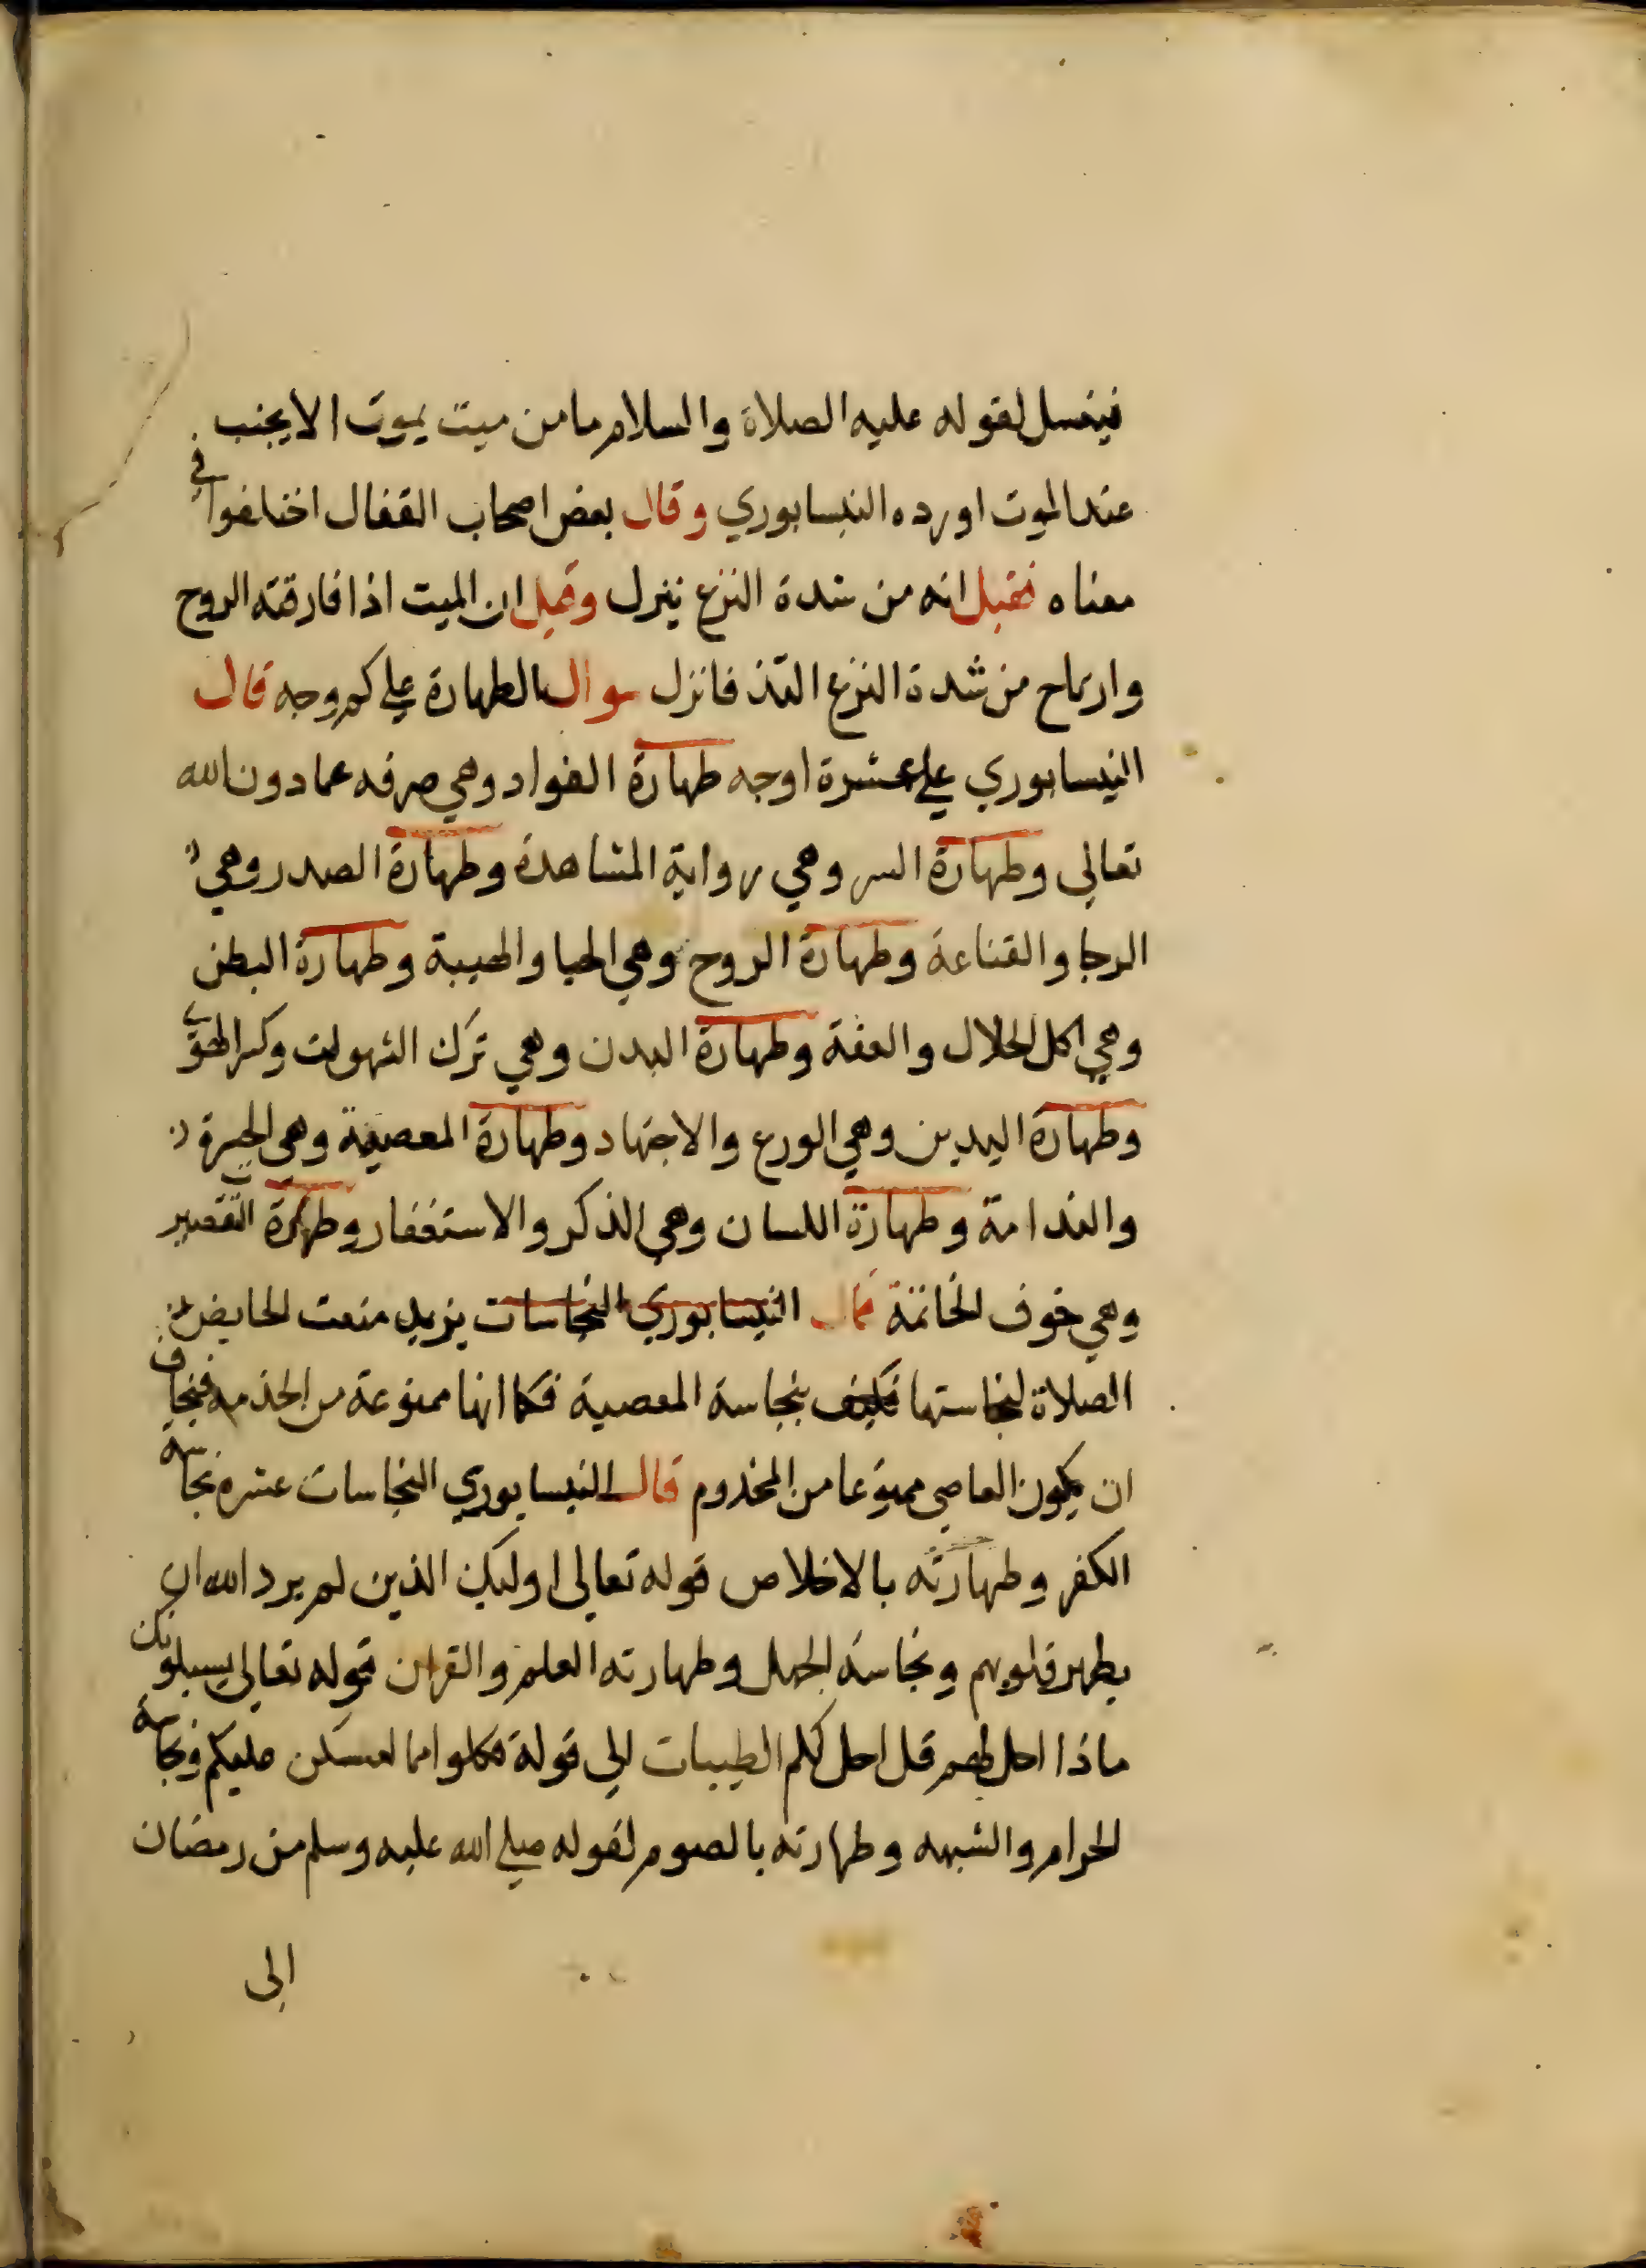 فيغسل لقوله عليه الصلاة والسلام ما من ميت يموت الا يجنب
عند الموت اورده النيسابوري وقال بعض اصحاب القفال اختلفوا في
معناه فقيل انه من شدة النزع ينزل وقيل ان الميت اذا فارقته الروح
وارتاح من شدة النزع التذ فانزل سوال الطهارة علي كم وجه قال
النيسابوري علي عشرة اوجه طهارة الفواد وهي صرفه عما دون الله
تعالي وطهارة السر وهي رواية المشاهدة وطهارة الصدر وهي
الرجا والقناعة وطهارة الروح وهي الحيا والهيبة وطهارة البطن
وهي اكل الحلال والعفة وطهارة البدن وهي ترك الشهوات وكسر الهوي
وطهارة اليدين وهي الورع والاجتهاد وطهارة المعصية وهي الحسرة
والندامة وطهارة اللسان وهي الذكر والاستغفار وطهارة التقصير
وهي خوف الخاتمة قال النيسابوري النجاسات يزيد منعت الحايض من
الصلاة لنجاستها فكيف بنجاسة المعصية فكما انها ممنوعة من الخدمة فنخاف
ان يكون العاصي ممنوعا من المخدوم قال النيسابوري النجاسات عشره نجاسة
الكفر وطهارته بالاخلاص قوله تعالي اوليك الذين لم يرد الله ان
يطهر قلوبهم ونجاسة الجهل وطهارته العلم والقران قوله تعالي يسيلونك
ماذا احل لهم قل احل لكم الطيبات الي قوله فكلوا مما امسكن عليكم ونجاسة
الحرام والشبهه وطهارته بالصوم لقوله صلي الله عليه وسلم من رمضان
الي